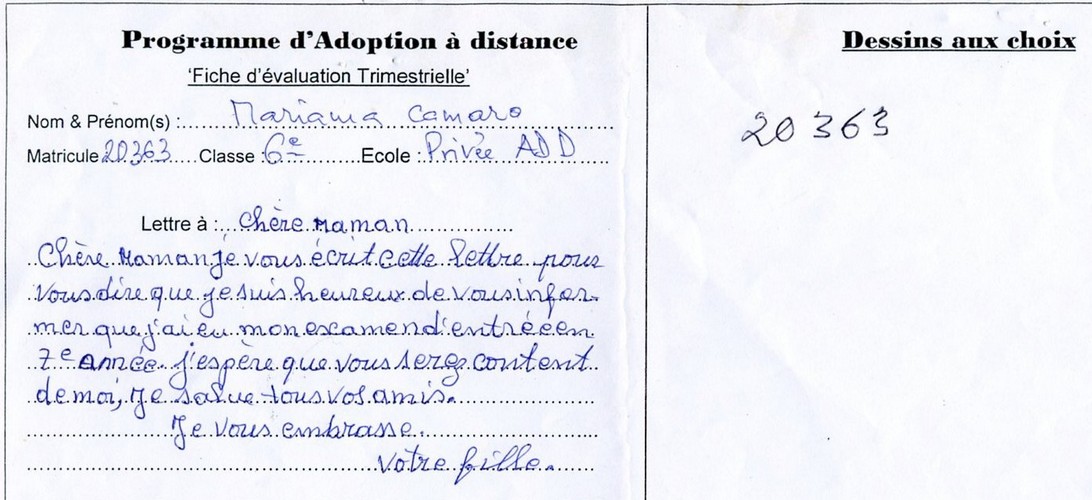 Programme d'Adoption à distance
'Fiche d'évaluation Trimestrielle'
Nom & Prénom(s) : Mariama Camaro
Matricule 20363 Classe : 6e Ecole : Privée ADD
Lettre à : Chère Maman
Chère Maman je vous écrit cette lettre pour
vous dire que je suis heureux de vous infor-
mer que j'ai eu mon escamen d'entrée en
7e année. j'espère que vous serez content
de moi, je salue tous vos amis.
Je vous embrasse.
votre fille.
Dessins aux choix
20363